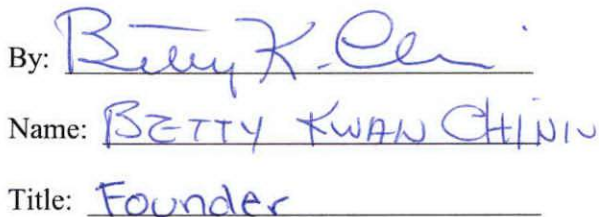 By: Betty K. Chin
Name: BETTY KWAN CHINN
Title: Founder